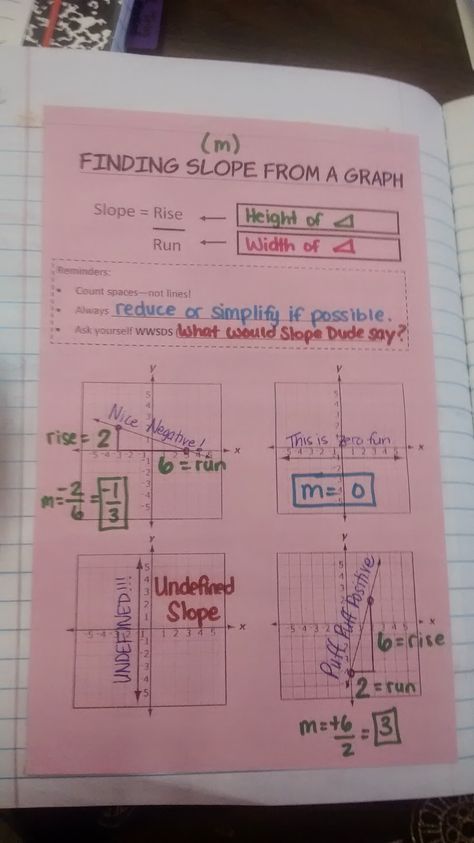 (m)
FINDING SLOPE FROM A GRAPH
Slope = Rise ← Height of ⊿
Run ← Width of ⊿
Reminders:
• Count spaces—not lines!
• Always reduce or simplify if possible.
• Ask yourself WWSDS (What would Slope Dude say?
y
Nice Negative!
rise = 2
6 = run
x
m = -2/6 = -1/3
y
This is Zero fun
x
m = 0
y
UNDEFINED!!!
Undefined
Slope
x
y
Puff, Puff Positive
x
6 = rise
2 = run
m = +6/2 = 3